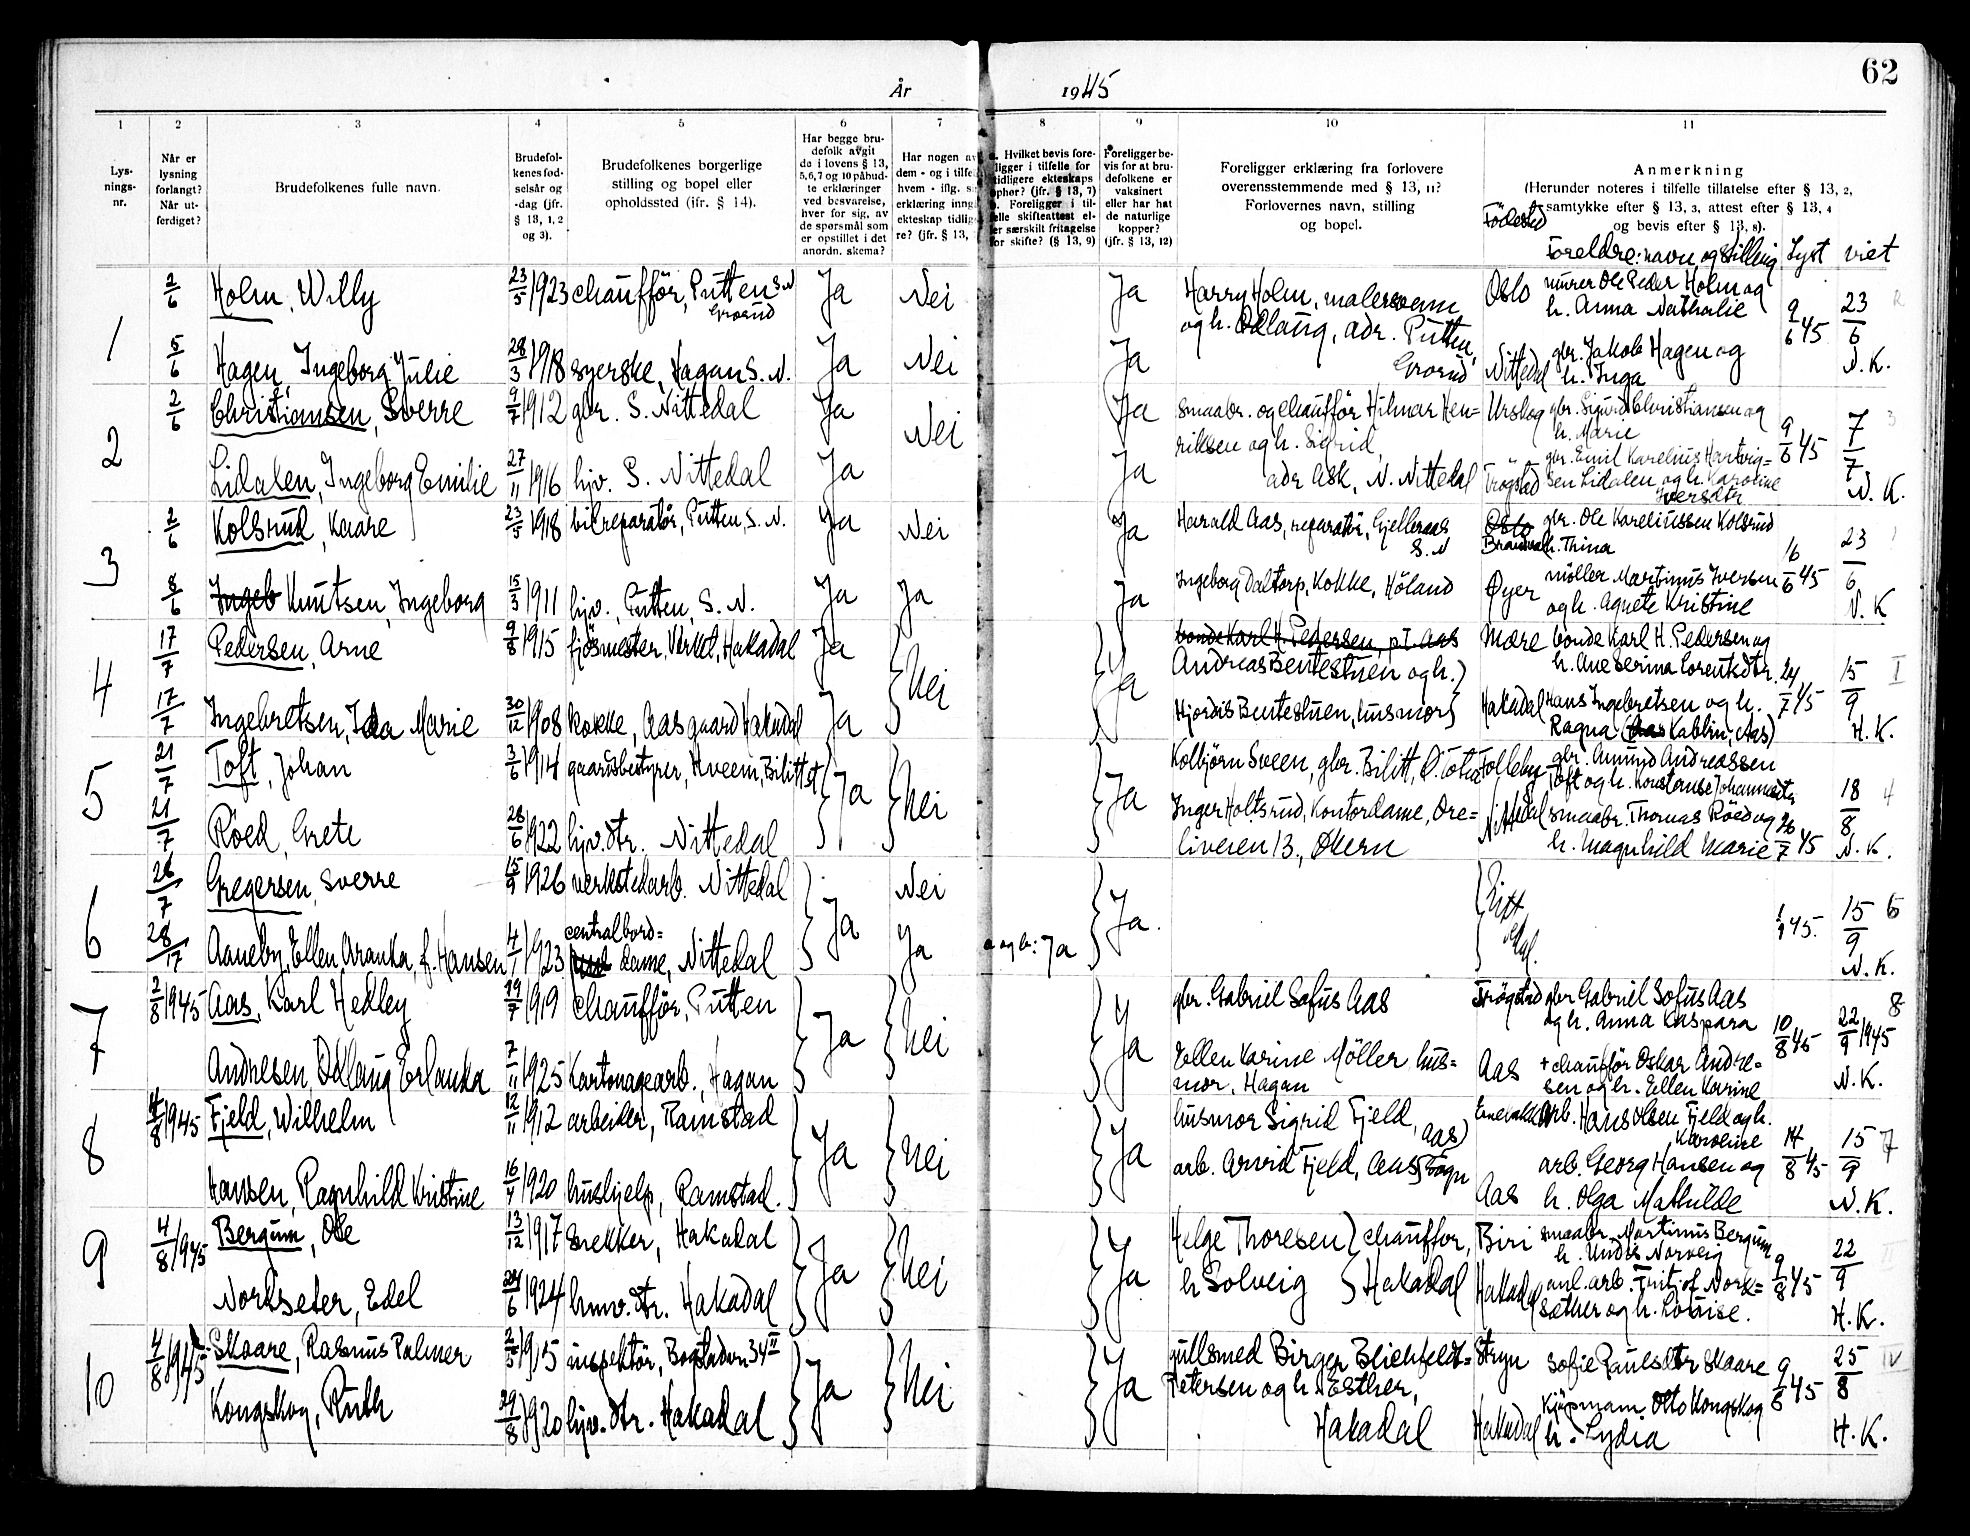 62
År 1945
1 2 3 4 5 6 7 8 9 10 11
Lys-
nings-
nr.
Når er
lysning
forlangt?
Når ut-
ferdiget?
Brudefolkenes fulle navn.
Brudefol-
kenes fød-
selsår og
-dag (jfr.
§ 13, 1, 2
og 3).
Brudefolkenes borgerlige
stilling og bopel eller
opholdssted (ifr. § 14).
Har begge bru-
defolk avgit
de i lovens § 13,
5,6,7 og 10 påbud-
te erklæringer
ved besvarelse,
hver for sig, av
de spørsmål som
er opstillet i det
anordn. skema?
Har nogen av
dem - og i tilfe
hvem - iflg. s.
erklæring inng
ekteskap tidlig
re? (jfr. § 13,
. Hvilket bevis fore-
ligger i tilfelle for
tidligere ekteskaps
ophør? (jfr. § 13, 7)
. Foreligger i til-
felle skifteattest el-
er særskilt fritagelse
for skifte? (§ 13, 9)
Foreligger be-
vis for at bru-
defolkene er
vaksinert
eller har hat
de naturlige
kopper?
(jfr. § 13, 12)
Foreligger erklæring fra forlovere
overensstemmende med § 13, 11?
Forlovernes navn, stilling
og bopel.
Anmerkning
(Herunder noteres i tilfelle tillatelse efter § 13, 2,
samtykke efter § 13, 3, attest efter § 13, 4
og bevis efter § 13, 8).
Födested
Foreldre: navn og stilling Lyst viet
1
2/6 Holm, Willy 23/5 1923 chaufför, Putten S.N. Grorud Ja Nei Ja
Harry Holm, malersvenn
og h. Odlaug, adr. Putten,
Grorud
Oslo murer Ole Peder Holm og
h. Anna Nathalie
9/6 45 23/6
5/6 Hagen, Ingeborg Julie 28/3 1918 syerske, Hagan S. N. Ja Nei Ja
Nittedal gbr. Jakob Hagen og
h. Inga
N. K.
2
2/6 Christiansen, Sverre 9/7 1912 gbr. S. Nittedal Ja Nei Ja
smaabr. og chaufför Hilmar Hen=
riksen og h. Sigrid,
adr Ask, N. Nittedal
Urskog gbr. Sigurd Christiansen og
h. Marie
9/6 45 7/7 3
Lidalen, Ingeborg Emilie 27/11 1916 hjv. S. Nittedal Ja Ja
Trögstad gbr. Emil Karelius Hartvig=
sen Lidalen og h. Karoline
Iversdtr
N. K.
3
2/6 Kolsrud, Kaare 23/5 1918 bilreparatör, Putten, S. N. Ja Nei Ja
Harald Aas, reparatör, Gjelleraas
S. N
Oslo gbr. Ole Kareliussen Kolsrud
h. Thina
16/6 45 23/6
8/6 Ingeb Knutsen, Ingeborg 15/3 1911 hjv., Putten, S. N. Ja Ja Ja
Ingeborg Daltorp, Kokke, Höland
Øyer möller Martinus Iversen
og h. Agnete Kristine
N. K
4
17/7 Pedersen, Arne 9/8 1915 fjösmester, Verket, Hakadal Ja Nei Ja
bonde Karl H. Pedersen, p.T. Aas
Andreas Bentestuen og h.
Hjördis Bentestuen, husmor
Mære bonde Karl H. Pedersen og
h. Ane Serina Lorentsdtr.
24/7 45 15/9 I
17/7 Ingebretsen, Ida Marie 30/12 1908 kokke, Aasgaard Hakadal Ja
Hakadal Hans Ingebretsen og h.
Ragna
H. K.
5
21/7 Toft, Johan 3/6 1914 gaardsbestyrer, Hveem, Bilittst Ja Nei Ja
Kolbjörn Sveen, gbr. Bilitt, Ø. Toten
Inger Holtsrud, Kontordame, Ore=
liveien 13, Økern
Follebu gbr. Amund Andreassen
Toft og h. Konstanse Johannesdtr
26/7 45 18/8 4
21/7 Röed, Grete 28/6 1922 hjv. dtr. Nittedal
Nittedal smaabr. Thomas Röed og
h. Magnhild Marie
N. K.
6
26/7 Gregersen, Sverre 15/9 1926 verkstedarb. Nittedal Ja Nei Ja.
1/9 45. 15/9 6
28/7 Aaneby, Ellen Aranka, f. Hansen 4/1 1923 centralbord=
dame, Nittedal Ja a og b: Ja
Nittedal.
N. K.
7
2/8 1945 Aas, Karl Hedley 19/7 1919 chaufför, Putten Ja Nei Ja
gbr. Gabriel Sofus Aas
Ellen Karine Möller hus=
mor, Hagan
Trögstad gbr Gabriel Sofus Aas
og h. Anna Kaspara
10/8 45 22/9 1945 8
Andresen, Odlaug Erlanka 7/11 1925 Kartonagearb., Hagan
Aas + chaufför Oskar Andre=
sen og h. Ellen Karine
N. K.
8
4/8 1945 Fjeld, Wilhelm 12/11 1912 arbeider, Ramstad Ja Nei Ja
husmor Sigrid Fjeld, Aas
arb. Arvid Fjeld, Aas
arb. Hans Olsen Fjeld og h.
Karoline
14/8 45 15/9 7
Hansen, Ragnhild Kristine 16/4 1920 hushjelp, Ramstad.
Aas arb. Georg Hansen og
h. Olga Mathilde
N. K.
9
4/8 1945 Bergum, Ole 13/12 1917 snekker, Hakadal Ja Nei Ja
Helge Thoresen chauffor,
h Solveig Hakadal
Biri smaabr. Martinus Bergum
9/8 45 22/9 II
Nordseter, Edel 24/6 1924 hmv. dtr. Hakadal
Hakadal anl. arb. Fritjof Nord=
sether og h. Lovise.
H. K.
10
4/8 1945 Skaare, Rasmus Palmer 2/5 1915 inspektör, Bogstadvn 34 II Ja Nei Ja
gullsmed Birger Blichfeldt=
Petersen og h. Esther,
Hakadal
Stryn Sofie Paulsdtr Skaare
9/8 45 25/8 IV
Kongskog, Ruth 29/8 1920 hjv. dtr. Hakadal
Hakadal kjöpmann Otto Kongskog
h. Lydia
H. K.